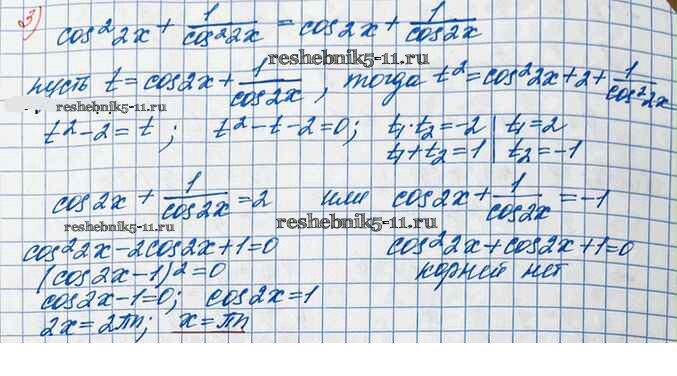 3) cos²2x + 1/cos²2x = cos2x + 1/cos2x
reshebnik5-11.ru
пусть t = cos2x + 1/cos2x, тогда t² = cos²2x + 2 + 1/cos²2x
reshebnik5-11.ru
t² - 2 = t; t² - t - 2 = 0; t₁·t₂ = -2 | t₁ = 2
t₁ + t₂ = 1 | t₂ = -1
cos2x + 1/cos2x = 2 или cos2x + 1/cos2x = -1
reshebnik5-11.ru reshebnik5-11.ru
cos²2x - 2cos2x + 1 = 0 cos²2x + cos2x + 1 = 0
(cos2x - 1)² = 0 корней нет
cos2x - 1 = 0; cos2x = 1
2x = 2πn; x = πn